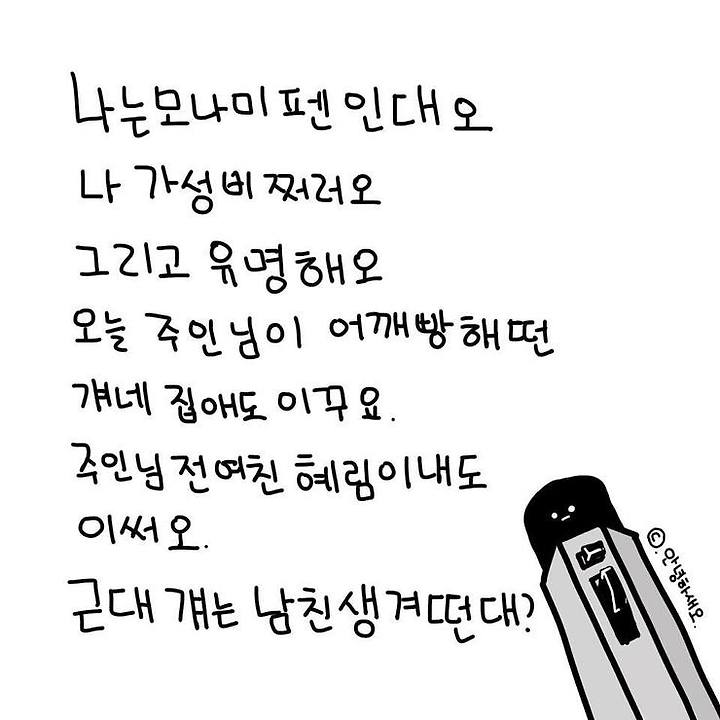 나는모나미 펜 인대오
나 가성비 쩌러오
그리고 유명해오
오늘 주인님이 어깨빵 해떤
걔네 집애도 이꾸요.
주인님 전여친 혜림이내도
이써오.
근대 걔는 남친생겨떤대?
ⓒ.안녕하새오.